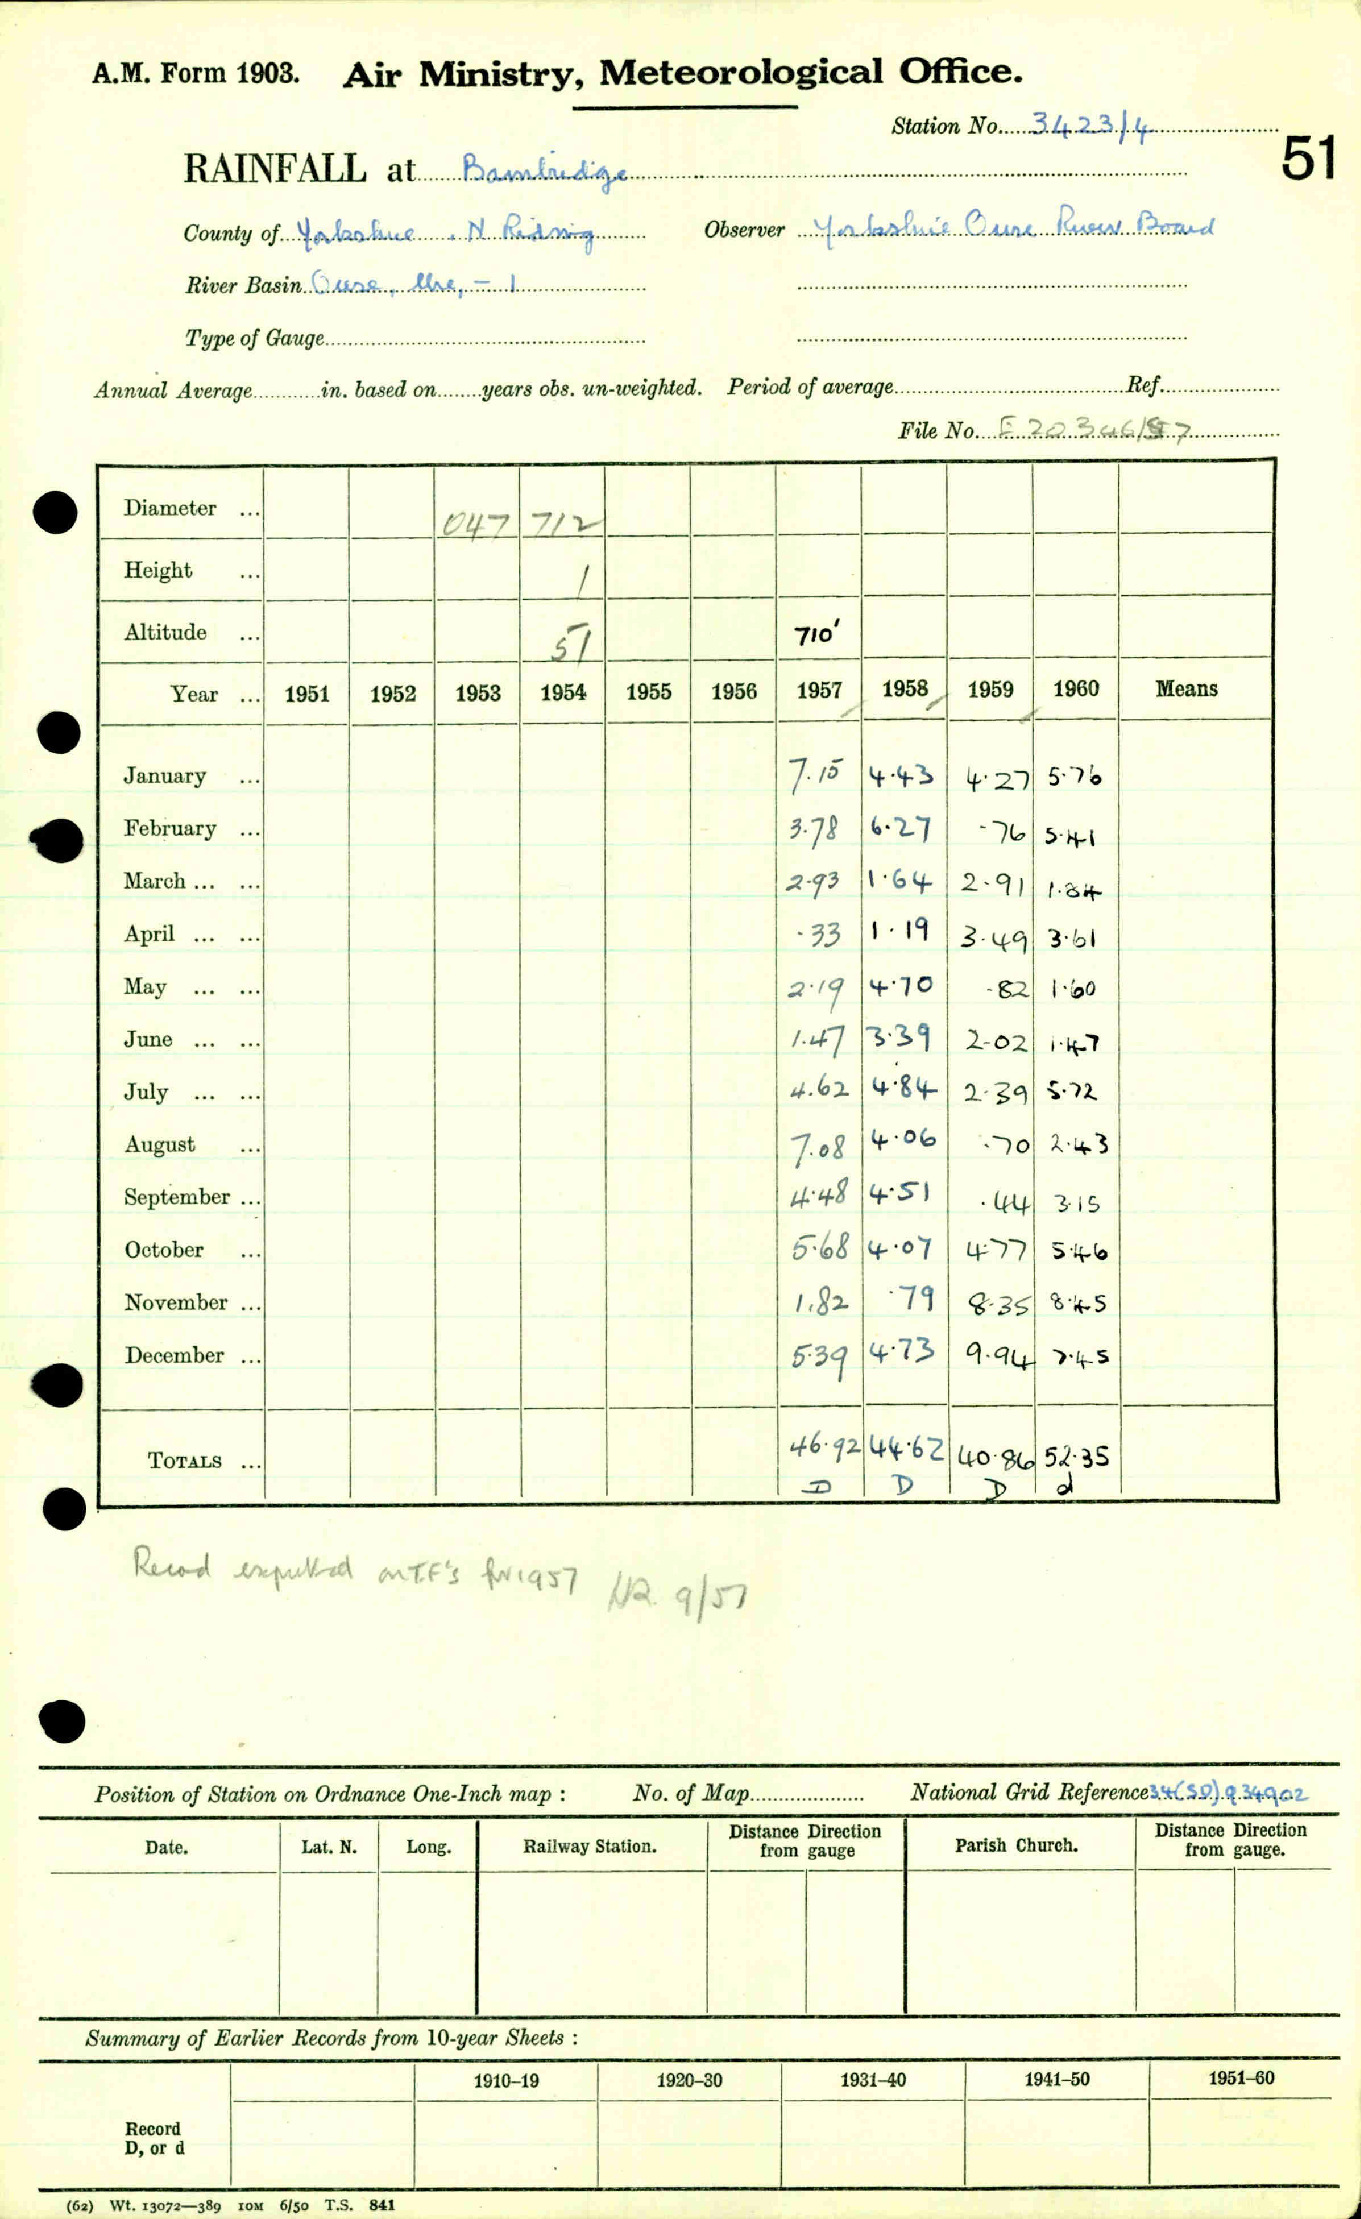 A.M. Form 1903. Air Ministry, Meteorological Office.
Station No. 3423/4
51
RAINFALL at Bainbridge
County of Yorkshire . N Riding Observer Yorkshire Ouse River Board
River Basin Ouse, Ure, - 1
Type of Gauge
Annual Average in. based on years obs. un-weighted. Period of average Ref.
File No. E 20346/57
Diameter ... 047 712
Height ... 1
Altitude ... 51 710'
Year ... 1951 1952 1953 1954 1955 1956 1957 1958 1959 1960 Means
January ... 7.15 4.43 4.27 5.76
February ... 3.78 6.27 .76 5.41
March ... ... 2.93 1.64 2.91 1.84
April ... ... .33 1.19 3.49 3.61
May ... ... 2.19 4.70 .82 1.60
June ... ... 1.47 3.39 2.02 1.47
July ... ... 4.62 4.84 2.39 5.72
August ... 7.08 4.06 .70 2.43
September ... 4.48 4.51 .44 3.15
October ... 5.68 4.07 4.77 5.46
November ... 1.82 .79 8.35 8.45
December ... 5.39 4.73 9.94 7.45
TOTALS ... 46.92 44.62 40.86 52.35
D D D d
Record expected on TF's for 1957 9/57
Position of Station on Ordnance One-Inch map : No. of Map National Grid Reference 34(SD) 934902
Date. Lat. N. Long. Railway Station. Distance Direction from gauge Parish Church. Distance Direction from gauge.
Summary of Earlier Records from 10-year Sheets :
1910–19 1920–30 1931–40 1941–50 1951–60
Record
D, or d
(62) Wt. 13072—389 10M 6/50 T.S. 841